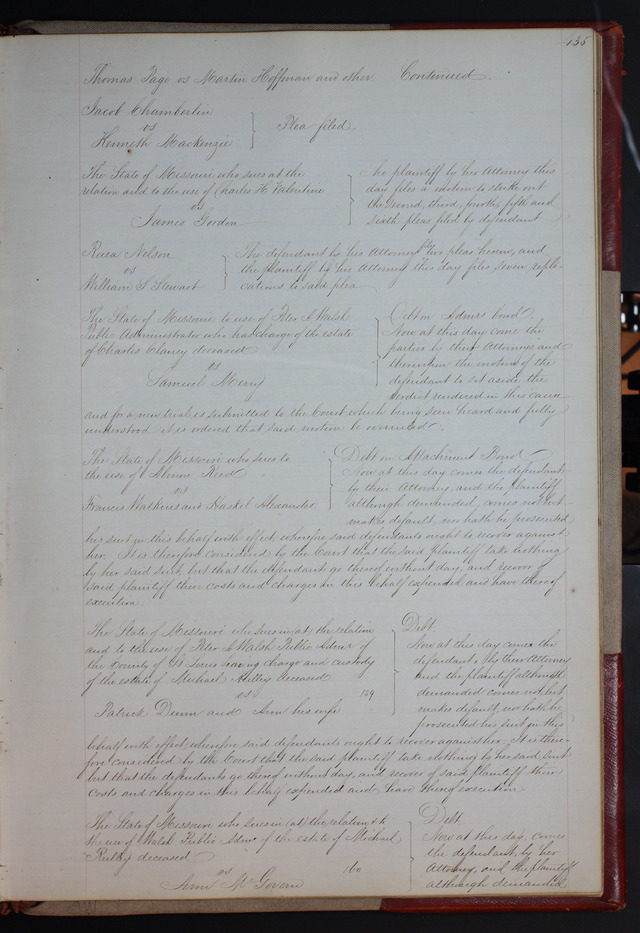 135
Thomas Page vs Martin Hoffman and other Continued.
Jacob Chamberlin
vs
Kenneth Mackenzie
Plea filed.
The State of Missouri who sues at the
relation and to the use of Charles H. Valentine
vs
James Gordon
he plaintiff by her Attorney this
day files a motion to strike out
the second, third, fourth, fifth and
sixth pleas filed by defendant
Nelson
vs
William S Stewart
The defendant by his Attorney two pleas herein, and
the plaintiff by his Attorney this day files seven repli-
cations to said plea
The State of Missouri to use of Peter A Walsh
Public Administrator who has charge of the estate
of Charles Chaney deceased
vs
Samuel Merry
Debt on Admrs bond.
Now at this day come the
parties by their Attorneys and
thereupon the motion of the
defendant to set aside the
verdict rendered in this cause
and for a new trial is submitted to the Court which being seen heard and fully
understood it is ordered that said motion be overruled.
The State of Missouri who sues to
the use of Reed
vs
Francis Watkins and Haskel Alexander.
Debt on Attachment Bond
Now at this day comes the defendants
by their Attorney, and the plaintiff
although demanded, comes not but
makes default, nor hath he prosecuted
her suit in this behalf with effect, wherefore said defendants ought to recover against
her. It is therefore considered by the Court that the said plaintiff take nothing
by her said suit, but that the defendants go thereof without day, and recover of
said plaintiff their costs and charges in this behalf expended and have thereof
execution.
The State of Missouri who sues in (at) the relation
and to the use of Peter A Walsh Public Admr of
the County of St Louis having charge and custody
of the estate of Michael deceased
vs 159
Patrick Dunn and Ann his wife
Debt
Now at this day comes the
defendants by their Attorney
and the plaintiff although
demanded comes not but
makes default, nor hath he
prosecuted his suit in this
behalf with effect, wherefore said defendants ought to recover against her. It is there-
fore considered by the Court that the said plaintiff take nothing by her said suit
but that the defendants go thereof without day, and recover of said plaintiff their
costs and charges in this behalf expended and have thereof execution
The State of Missouri who sues in (at) the relation & to
the use of Walsh Public Admr of the estate of Michael
Reilly deceased
vs 160
Ann McGovern
Debt
Now at this day, comes
the defendant, by her
Attorney, and the plaintiff
although demanded